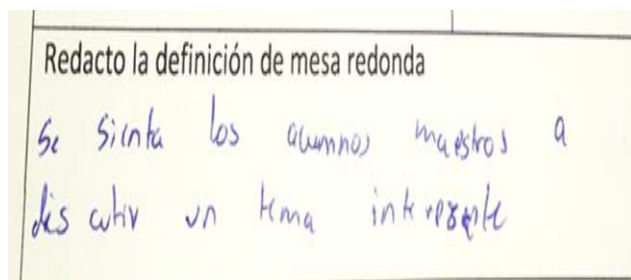 Redacto la definición de mesa redonda
Se sienta los alumnos maestros a
discutir un tema interesante